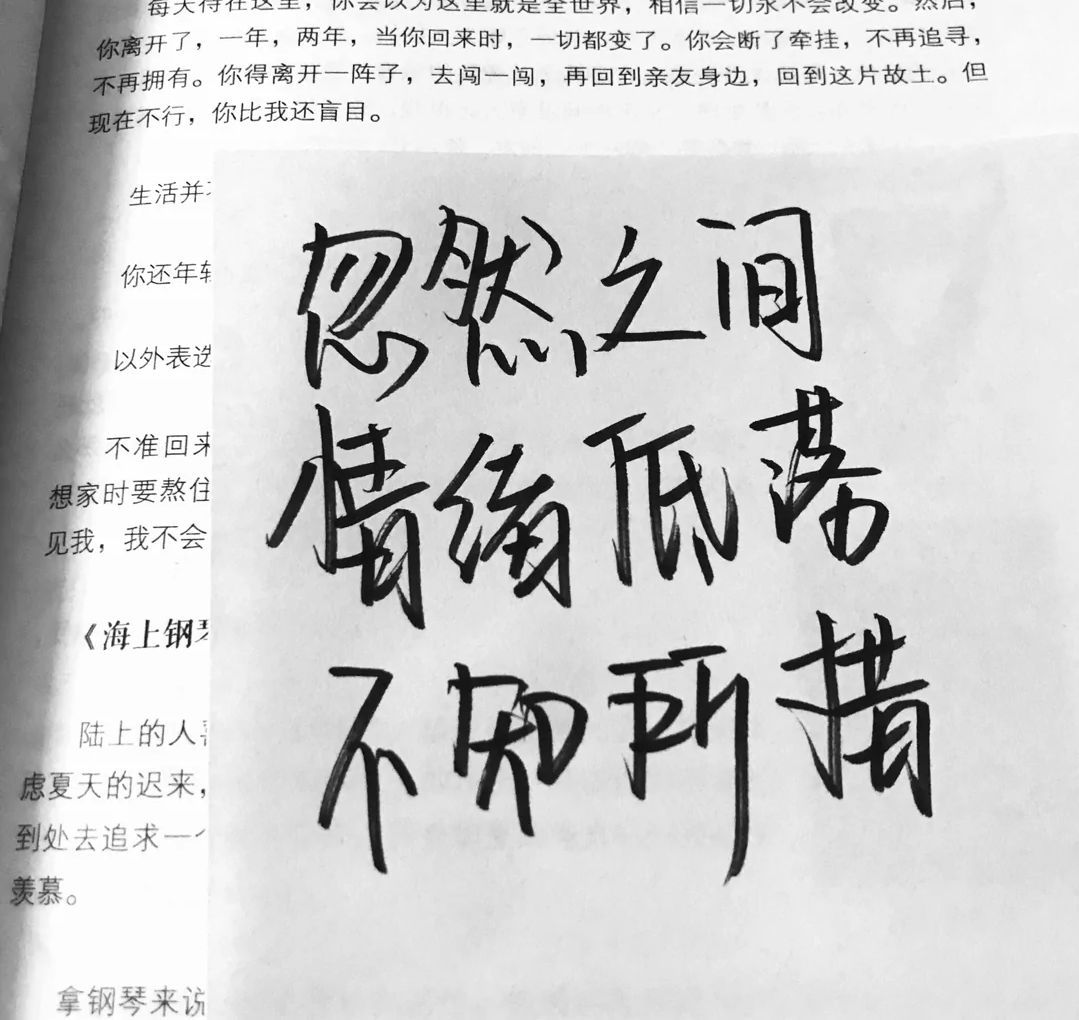 每天待在这里，你会以为这里就是全世界，相信一切永不会改变。然后，
你离开了，一年，两年，当你回来时，一切都变了。你会断了牵挂，不再追寻，
不再拥有。你得离开一阵子，去闯一闯，再回到亲友身边，回到这片故土。但
现在不行，你比我还盲目。
生活并
你还年
以外表选
不准回来
想家时要熬住
见我，我不会
《海上钢
陆上的人
虑夏天的迟来，
到处去追求一
羡慕。
拿钢琴来说
忽然之间
情绪低落
不知所措